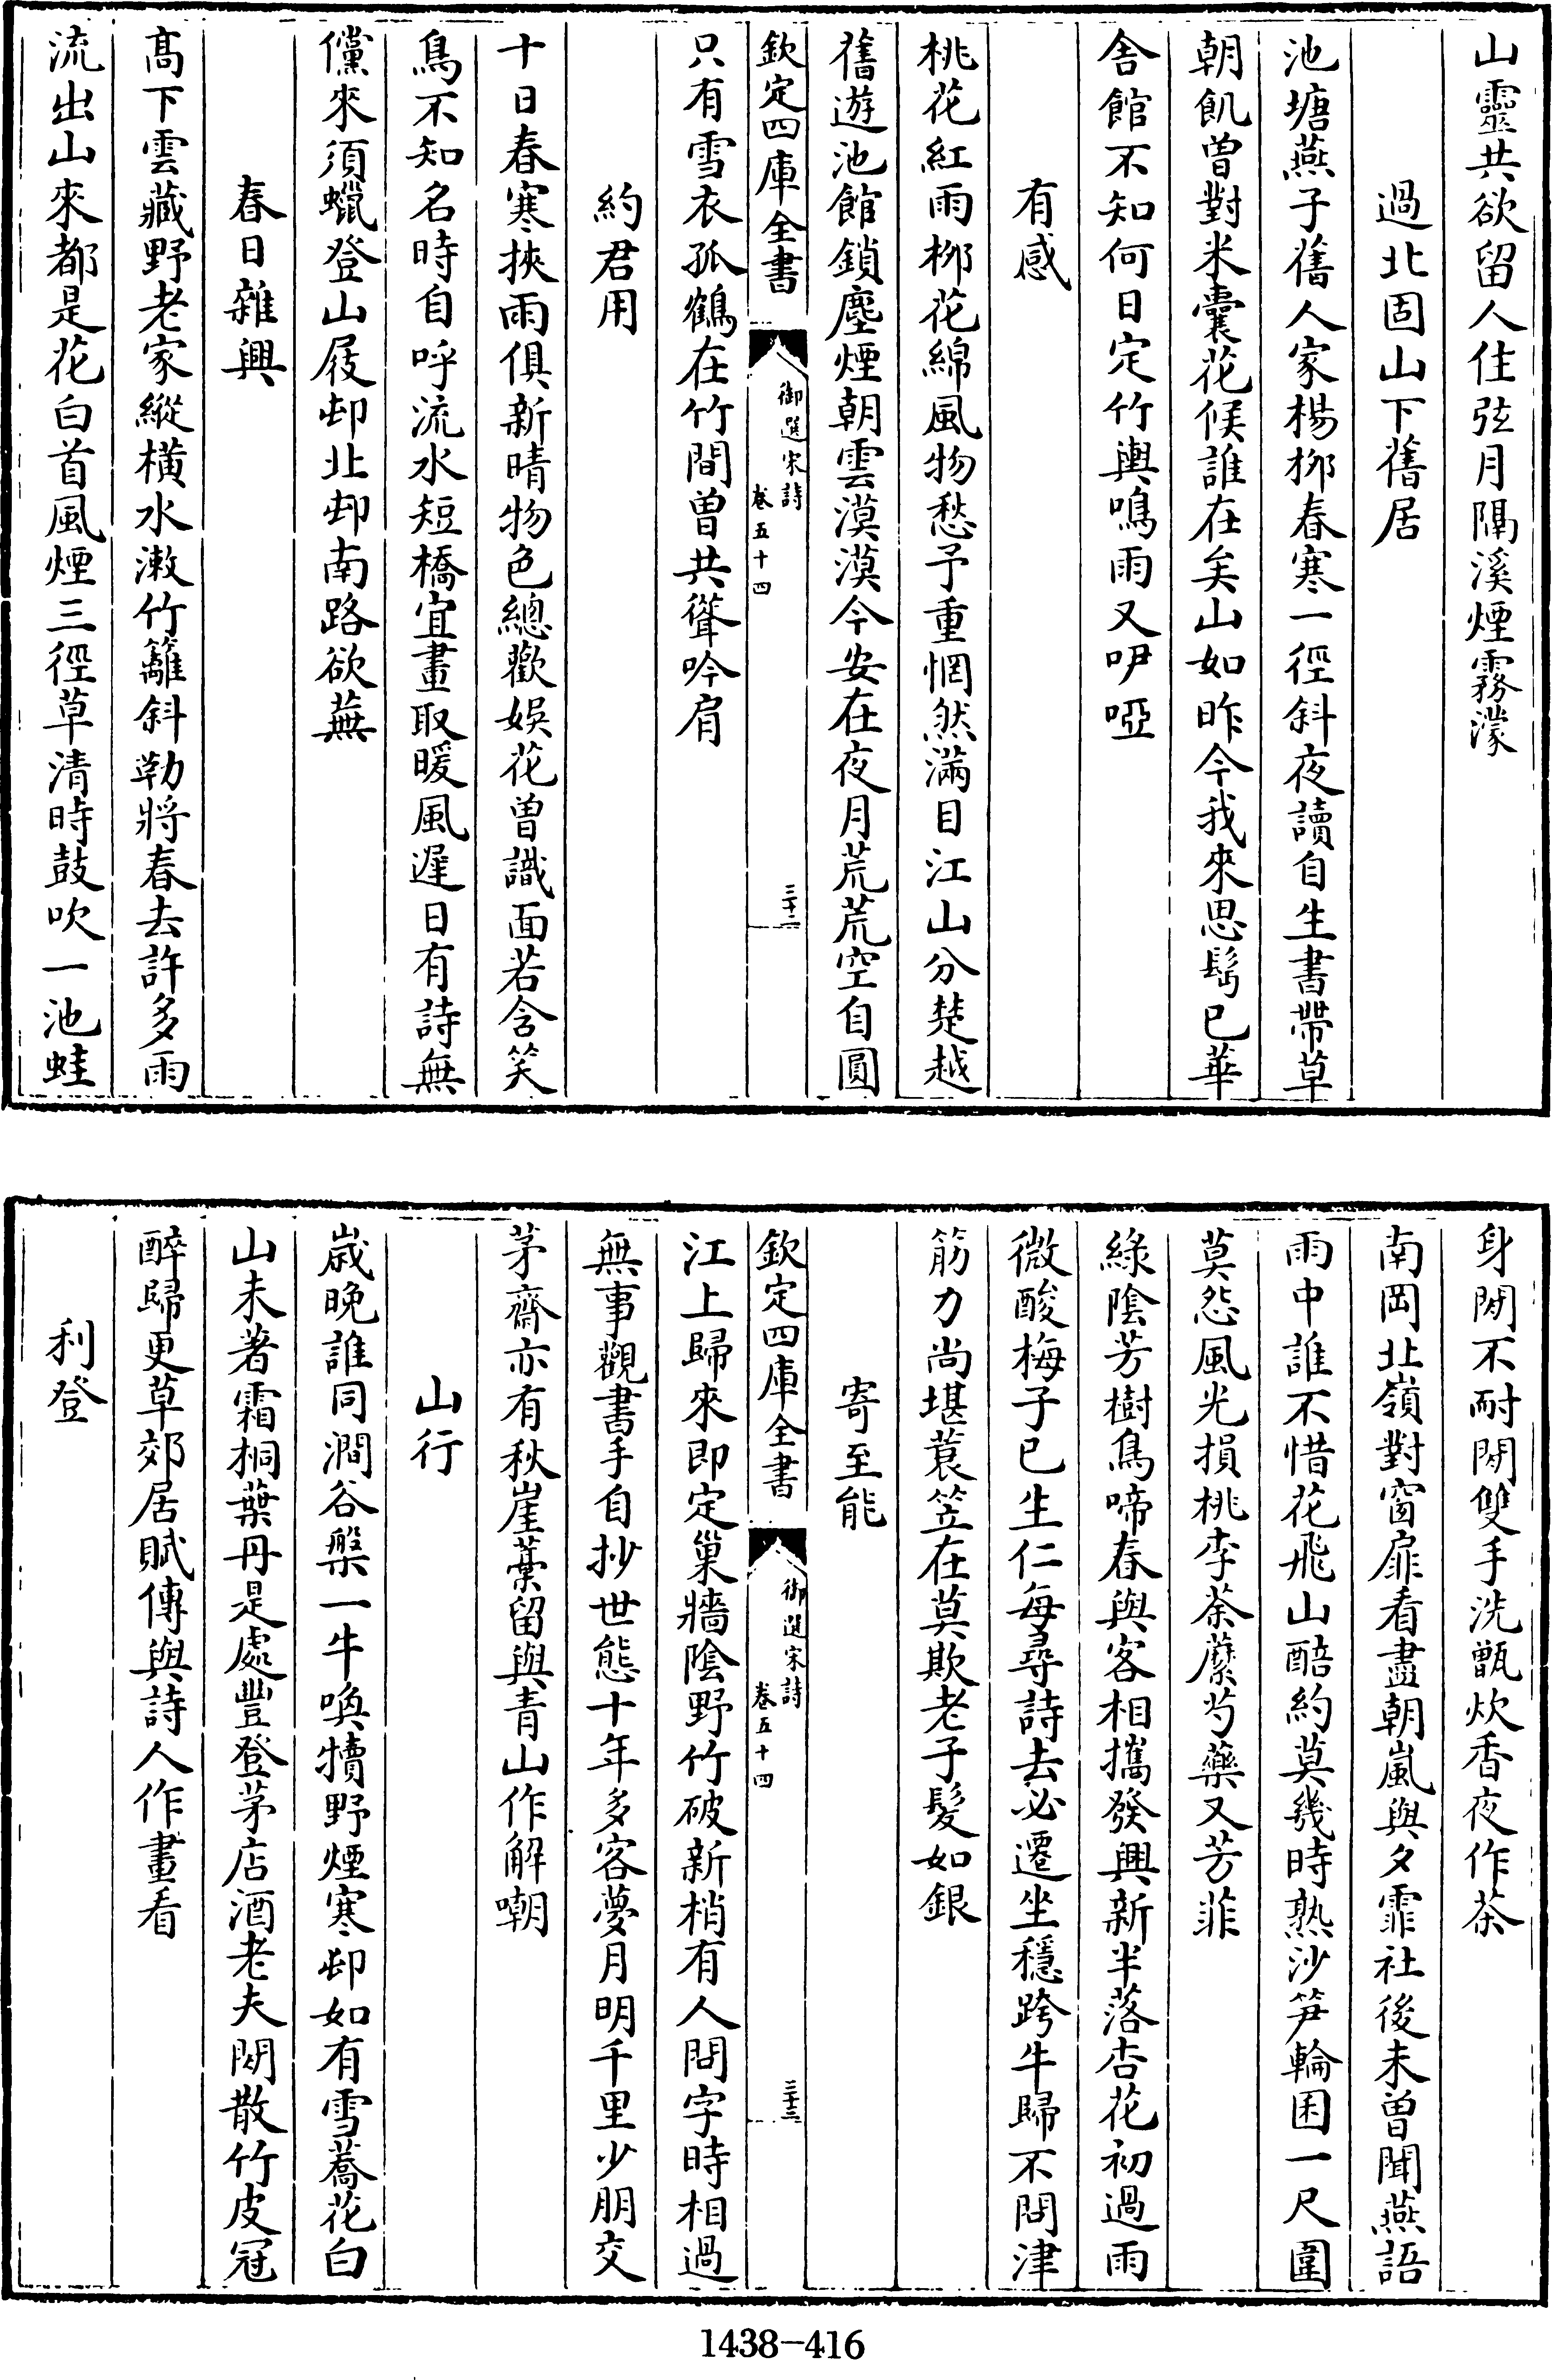 山靈共欲留人住弦月隔溪煙霧濛
過北固山下舊居
池塘燕子舊人家楊柳春寒一徑斜夜讀自生書帶草
朝飢曾對米囊花候誰在矣山如昨今我來思髩已華
舍館不知何日定竹輿鳴雨又咿啞
有感
桃花紅雨柳花綿風物愁予重惘然滿目江山分楚越
舊遊池館鎖塵煙朝雲漠漠今安在夜月荒荒空自圓
欽定四庫全書
御選宋詩
卷五十四
三十二
只有雪衣孤鶴在竹間曾共聳吟肩
約君用
十日春寒挾雨俱新晴物色總歡娛花曾識面若含笑
鳥不知名時自呼流水短橋宜畫取暖風遲日有詩無
儻來須蠟登山屐邨北邨南路欲蕪
春日雜興
髙下雲藏野老家縱橫水漱竹籬斜勒將春去許多雨
流出山來都是花白首風煙三徑草清時鼓吹一池蛙
身閑不耐閑雙手洗甑炊香夜作茶
南岡北嶺對窗扉看盡朝嵐與夕霏社後未曾聞燕語
雨中誰不惜花飛山醅約莫幾時熟沙笋輪囷一尺圍
莫怨風光損桃李荼蘼芍藥又芳菲
綠陰芳樹鳥啼春與客相攜發興新半落杏花初過雨
微酸梅子已生仁每尋詩去必遷坐穩跨牛歸不問津
筋力尚堪蓑笠在莫欺老子髮如銀
寄至能
欽定四庫全書
御選宋詩
卷五十四
三十三
江上歸來即定巢牆陰野竹破新梢有人問字時相過
無事觀書手自抄世態十年多客夢月明千里少朋交
茅齋亦有秋崖藁留與青山作解嘲
山行
歲晚誰同澗谷槃一牛喚犢野煙寒邨如有雪蕎花白
山未著霜桐葉丹是處豐登茅店酒老夫閑散竹皮冠
醉歸更草郊居賦傳與詩人作畫看
利登
1438-416